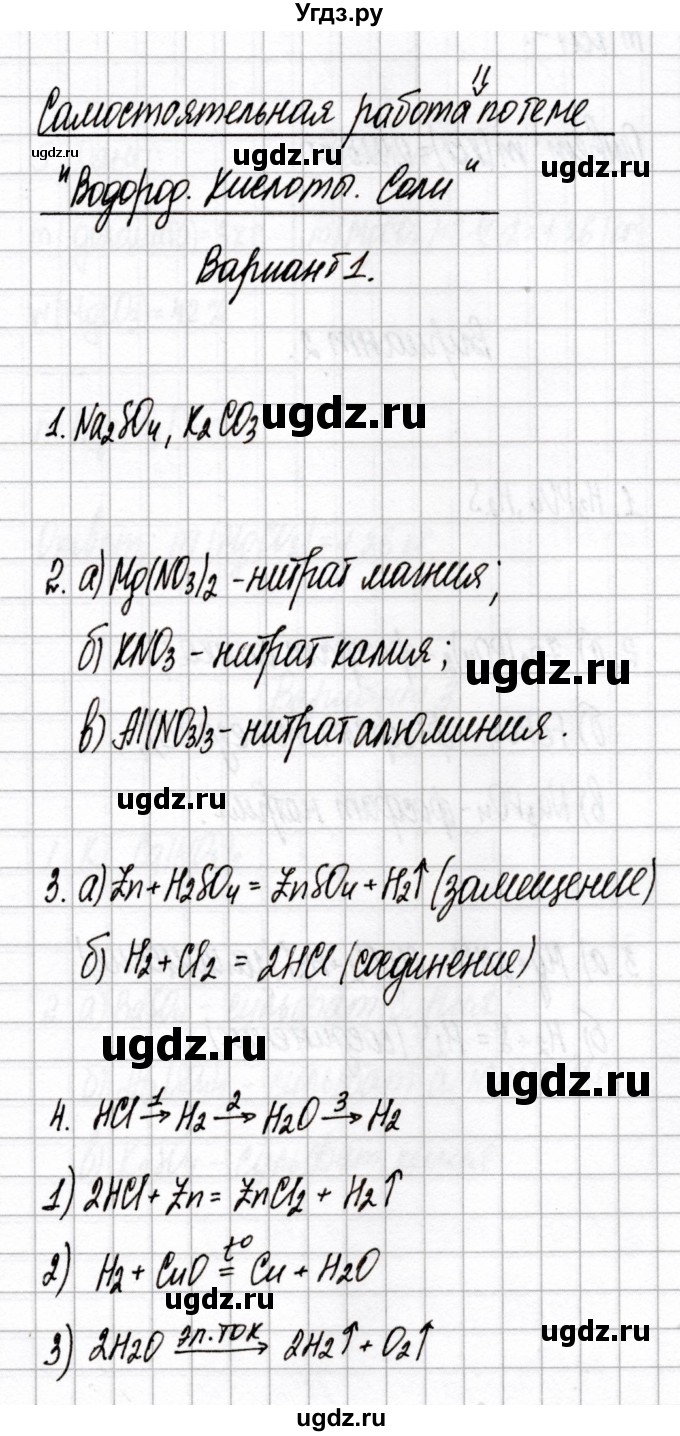 Угдз.ру
Самостоятельная работа по теме
ugdz.ru ugdz.ru ugdz.ru
"Водород. Кислоты. Соли"
Вариант 1.
1. Na2SO4, K2CO3 ugdz.ru
2. а) Mg(NO3)2 - нитрат магния;
б) KNO3 - нитрат калия;
ugdz.ru
в) Al(NO3)3 - нитрат алюминия.
ugdz.ru
3. а) Zn + H2SO4 = ZnSO4 + H2↑ (замещение)
б) H2 + Cl2 = 2HCl (соединение)
ugdz.ru
ugdz.ru
4. HCl →1 H2 →2 H2O →3 H2
1) 2HCl + Zn = ZnCl2 + H2↑
2) H2 + CuO =t° Cu + H2O
ugdz.ru
ugdz.ru
3) 2H2O эл. ток → 2H2↑ + O2↑
ugdz.ru